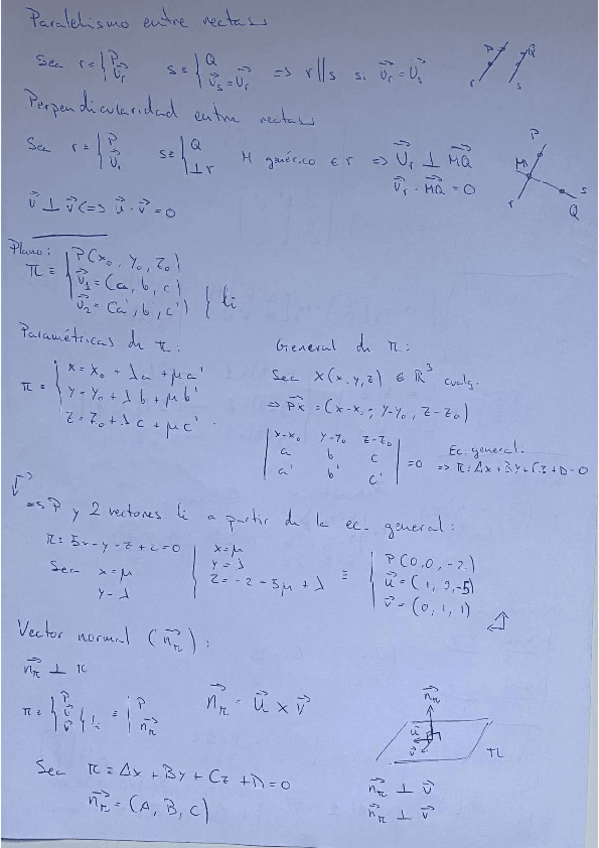 Paralelismo entre rectas
Sea r ≡ { P, v⃗r   s ≡ { Q, v⃗s = v⃗r   => r ∥ s si v⃗r = v⃗s
P Q
r s
Perpendicularidad entre rectas
Sea r ≡ { P, v⃗r   s ≡ { Q, ⊥ r   M genérico ∈ r => v⃗r ⊥ MQ⃗
v⃗r · MQ⃗ = 0
P
M
r s
Q
u⃗ ⊥ v⃗ <=> u⃗ · v⃗ = 0
Plano:
π ≡ { P(x₀, y₀, z₀)
v⃗₁ = (a, b, c)
v⃗₂ = (a', b', c') } li
Paramétricas de π:
π ≡ { x = x₀ + λa + μa'
y = y₀ + λb + μb'
z = z₀ + λc + μc'
General de π:
Sea X(x, y, z) ∈ ℝ³ cualq.
=> PX⃗ = (x-x₀, y-y₀, z-z₀)
| x-x₀ y-y₀ z-z₀ |
| a b c | = 0
| a' b' c' |
Ec. general.
=> π: Ax + By + Cz + D = 0
=> P y 2 vectores li a partir de la ec. general:
Sea x = μ
y = λ
{ x = μ
y = λ
z = -2 - 5μ + λ
≡ { P(0, 0, -2)
v⃗ = (0, 1, 1)
Vector normal (n⃗π):
n⃗π ⊥ π
π ≡ { P, u⃗, v⃗ } li ≡ { P, n⃗π
n⃗π = u⃗ × v⃗
n⃗π
u⃗
v⃗
π
Sea π ≡ Ax + By + Cz + D = 0
n⃗π = (A, B, C)
n⃗π ⊥ v⃗
n⃗π ⊥ v⃗